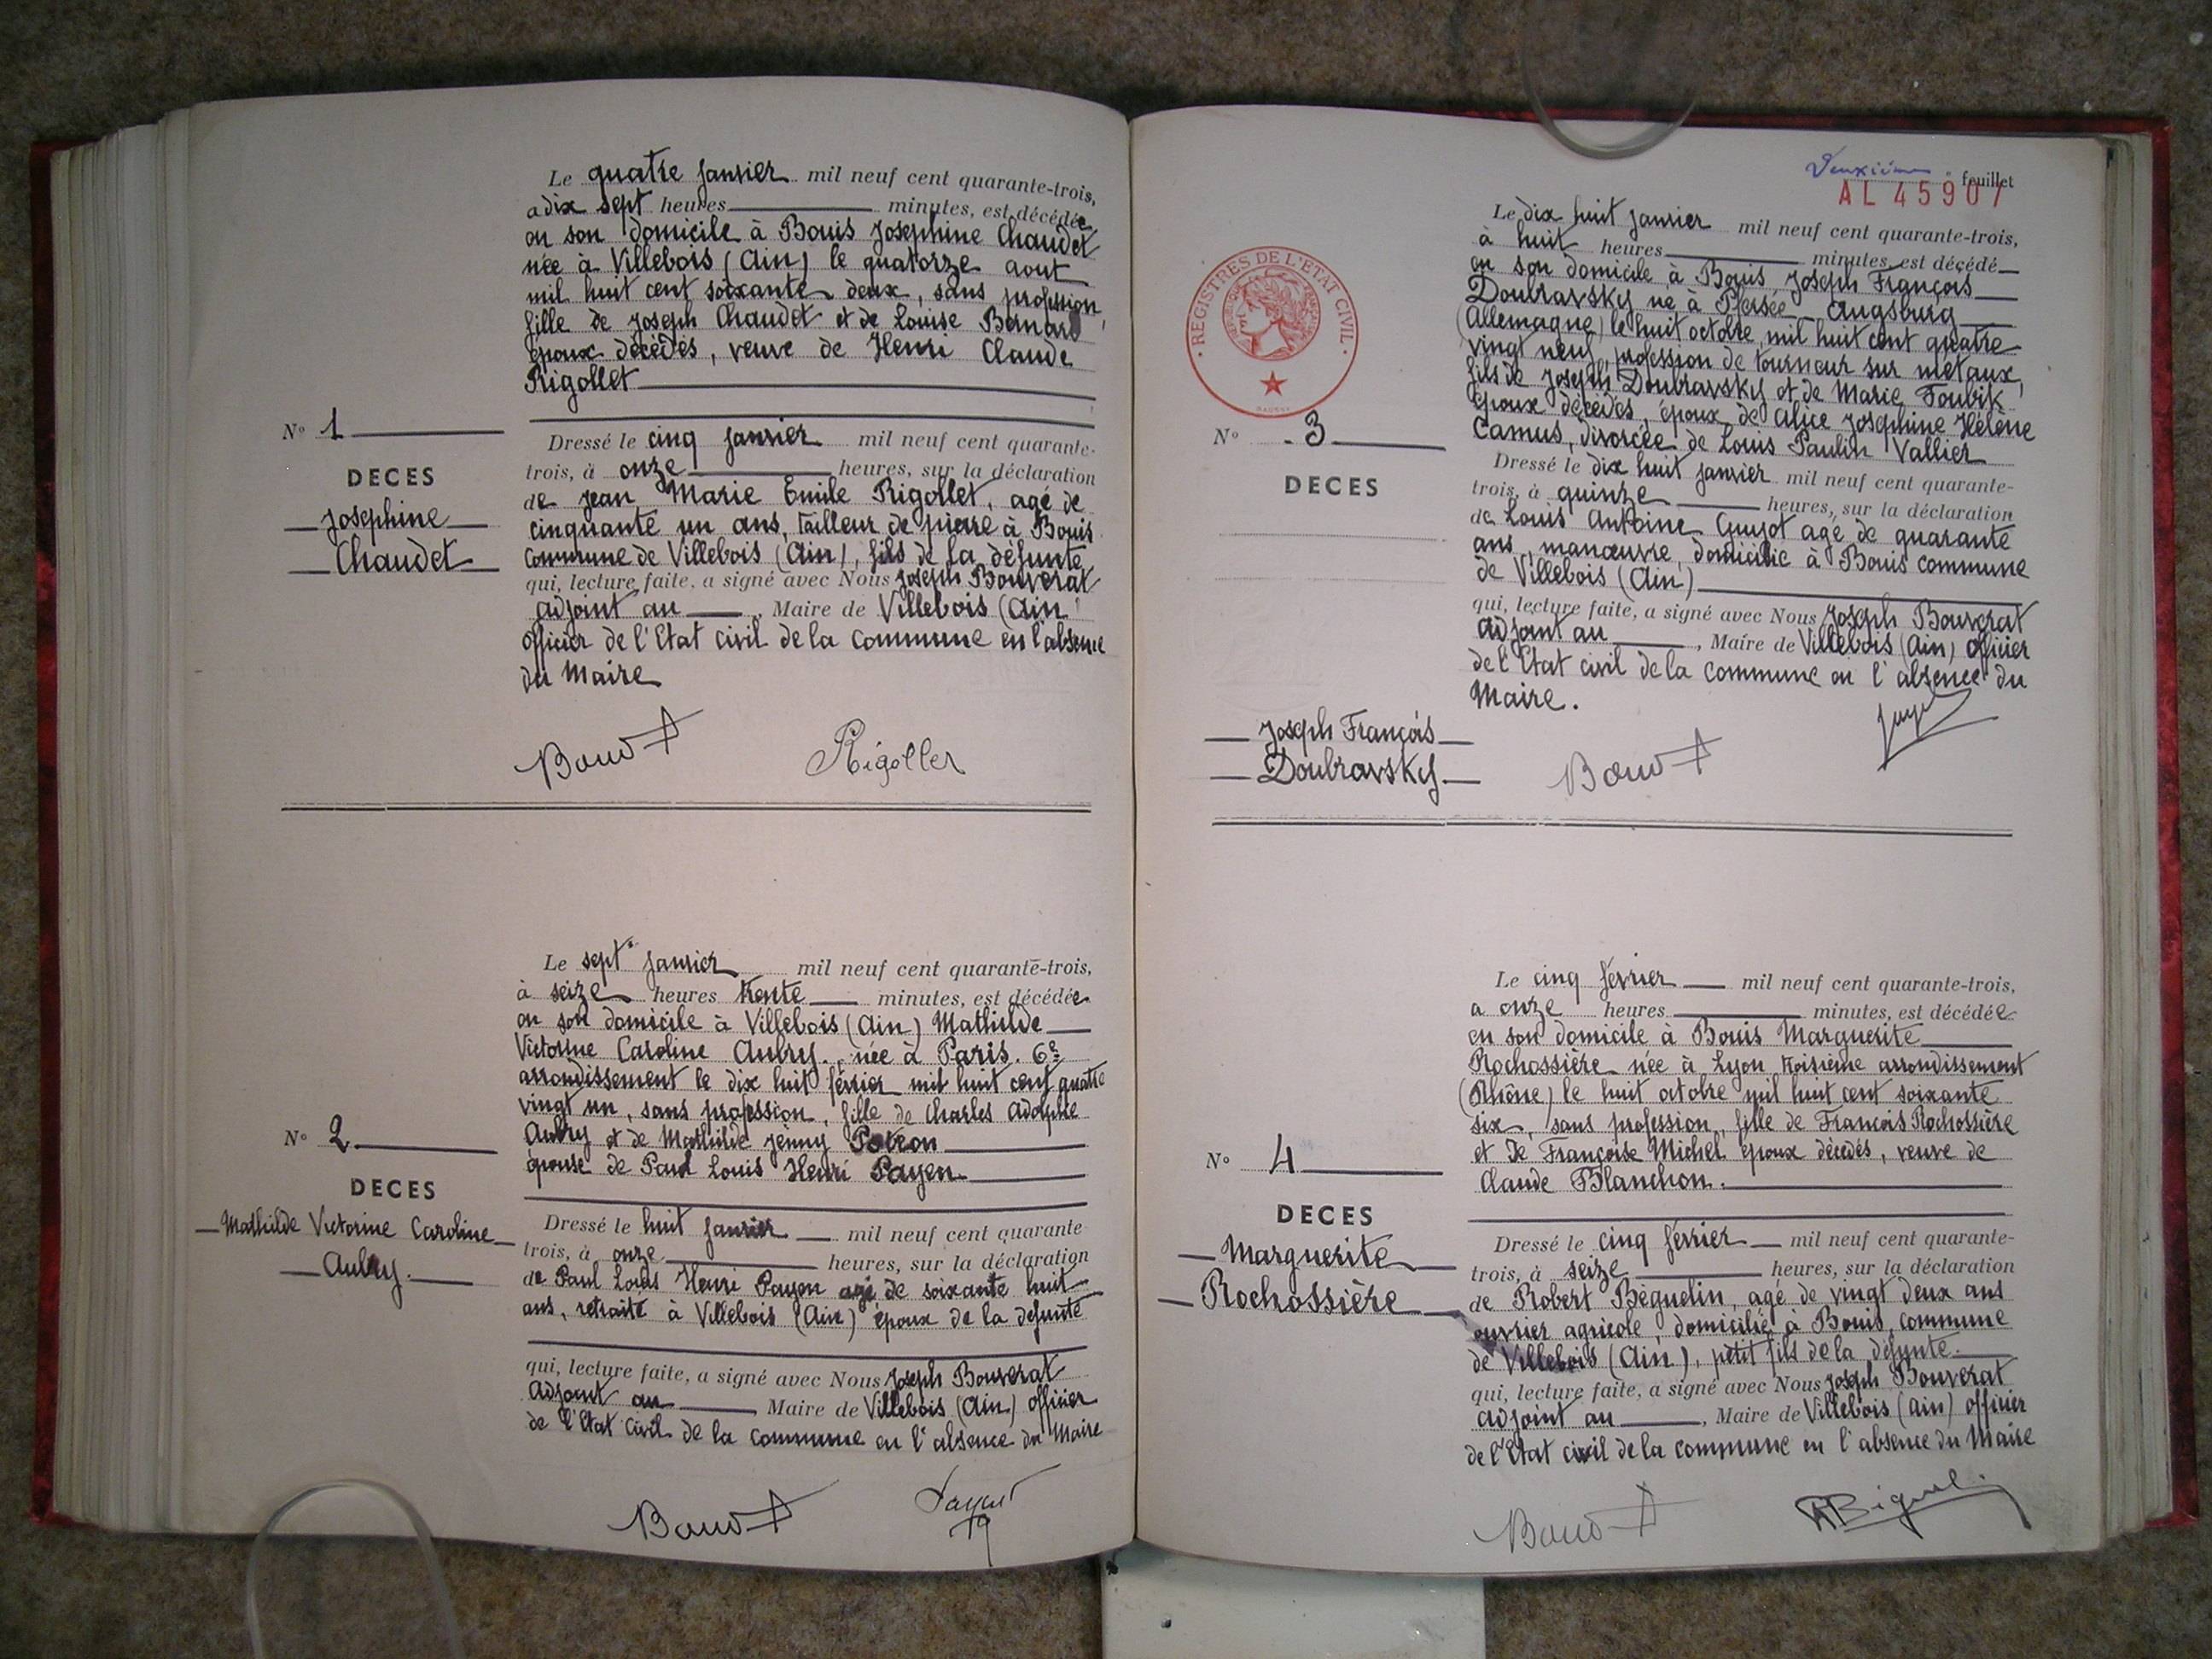 Le quatre janvier mil neuf cent quarante-trois,
a dix sept heures minutes, est décédée
en son domicile à Bouis Josephine Chaudet
née à Villebois (Ain) le quatorze aout
mil huit cent soixante deux, sans profession,
fille de Joseph Chaudet et de Louise Bernard
époux décédés, veuve de Henri Claude
Rigollet
N° 1
DECES
Josephine
Chaudet
Dressé le cinq janvier mil neuf cent quarante-
trois, à onze heures, sur la déclaration
de Jean Marie Emile Rigollet, agé de
cinquante un ans, tailleur de pierre à Bouis
commune de Villebois (Ain), fils de la défunte
qui, lecture faite, a signé avec Nous Joseph Bouverat
adjoint au , Maire de Villebois (Ain)
officier de l'Etat civil de la commune en l'absence
du Maire
Rigollet
Le sept janvier mil neuf cent quarante-trois,
à seize heures trente minutes, est décédée
en son domicile à Villebois (Ain) Mathilde
Victorine Caroline Aubry, née à Paris. 6e
arrondissement le dix huit février mil huit cent quatre
vingt un, sans profession, fille de Charles Adolphe
Aubry et de Mathilde Jenny Potron
épouse de Paul Louis Henri Payen
N° 2
DECES
Mathilde Victorine Caroline
Aubry.
Dressé le huit janvier mil neuf cent quarante-
trois, à onze heures, sur la déclaration
de Paul Louis Henri Payen agé de soixante huit
ans, retraité à Villebois (Ain) époux de la defunte
qui, lecture faite, a signé avec Nous Joseph Bouverat
Adjoint au Maire de Villebois (Ain) officier
de l'Etat civil de la commune en l'absence du Maire
Deuxième feuillet
AL 45907
REGISTRES DE L'ETAT CIVIL
Le dix huit janvier mil neuf cent quarante-trois,
à huit heures minutes, est décédé
en son domicile à Bouis, Joseph François
Doubravsky né à Pfersée Augsburg
(Allemagne) le huit octobre mil huit cent quatre
vingt neuf, profession de tourneur sur métaux,
fils de Joseph Doubravsky et de Marie Foubik
époux décédés, époux de Alice Josephine Hélène
Camus, divorcée de Louis Paulin Vallier
N° 3
DECES
Joseph François
Doubravsky
Dressé le dix huit janvier mil neuf cent quarante-
trois, à quinze heures, sur la déclaration
de Louis Antoine Guyot agé de quarante
ans, manœuvre, domicilié à Bouis commune
de Villebois (Ain)
qui, lecture faite, a signé avec Nous Joseph Bouverat
Adjoint au , Maire de Villebois (Ain) officier
de l'Etat civil de la commune en l'absence du
Maire.
Le cinq février mil neuf cent quarante-trois,
a onze heures minutes, est décédée
en son domicile à Bouis Marguerite
Rochossière née à Lyon troisième arrondissement
(Rhône) le huit octobre mil huit cent soixante
six, sans profession, fille de François Rochossière
et de Françoise Michel époux décédés, veuve de
Claude Blanchon.
N° 4
DECES
Marguerite
Rochossière
Dressé le cinq février mil neuf cent quarante-
trois, à seize heures, sur la déclaration
de Robert Béguelin, agé de vingt deux ans
ouvrier agricole, domicilié à Bouis, commune
de Villebois (Ain), petit fils de la défunte.
qui, lecture faite, a signé avec Nous Joseph Bouverat
adjoint au , Maire de Villebois (Ain) officier
de l'Etat civil de la commune en l'absence du Maire